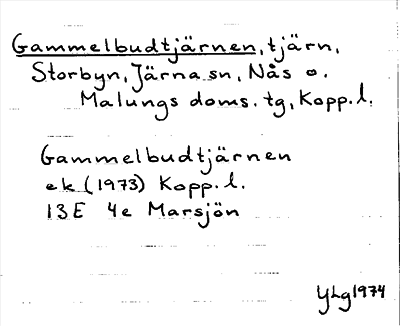 Gammelbudtjärnen, tjärn,
Storbyn, Järna sn, Nås o.
Malungs doms. tg, Kopp. l.
Gammelbudtjärnen
ek (1973) Kopp. l.
13E 4e Marsjön
YLg 1974